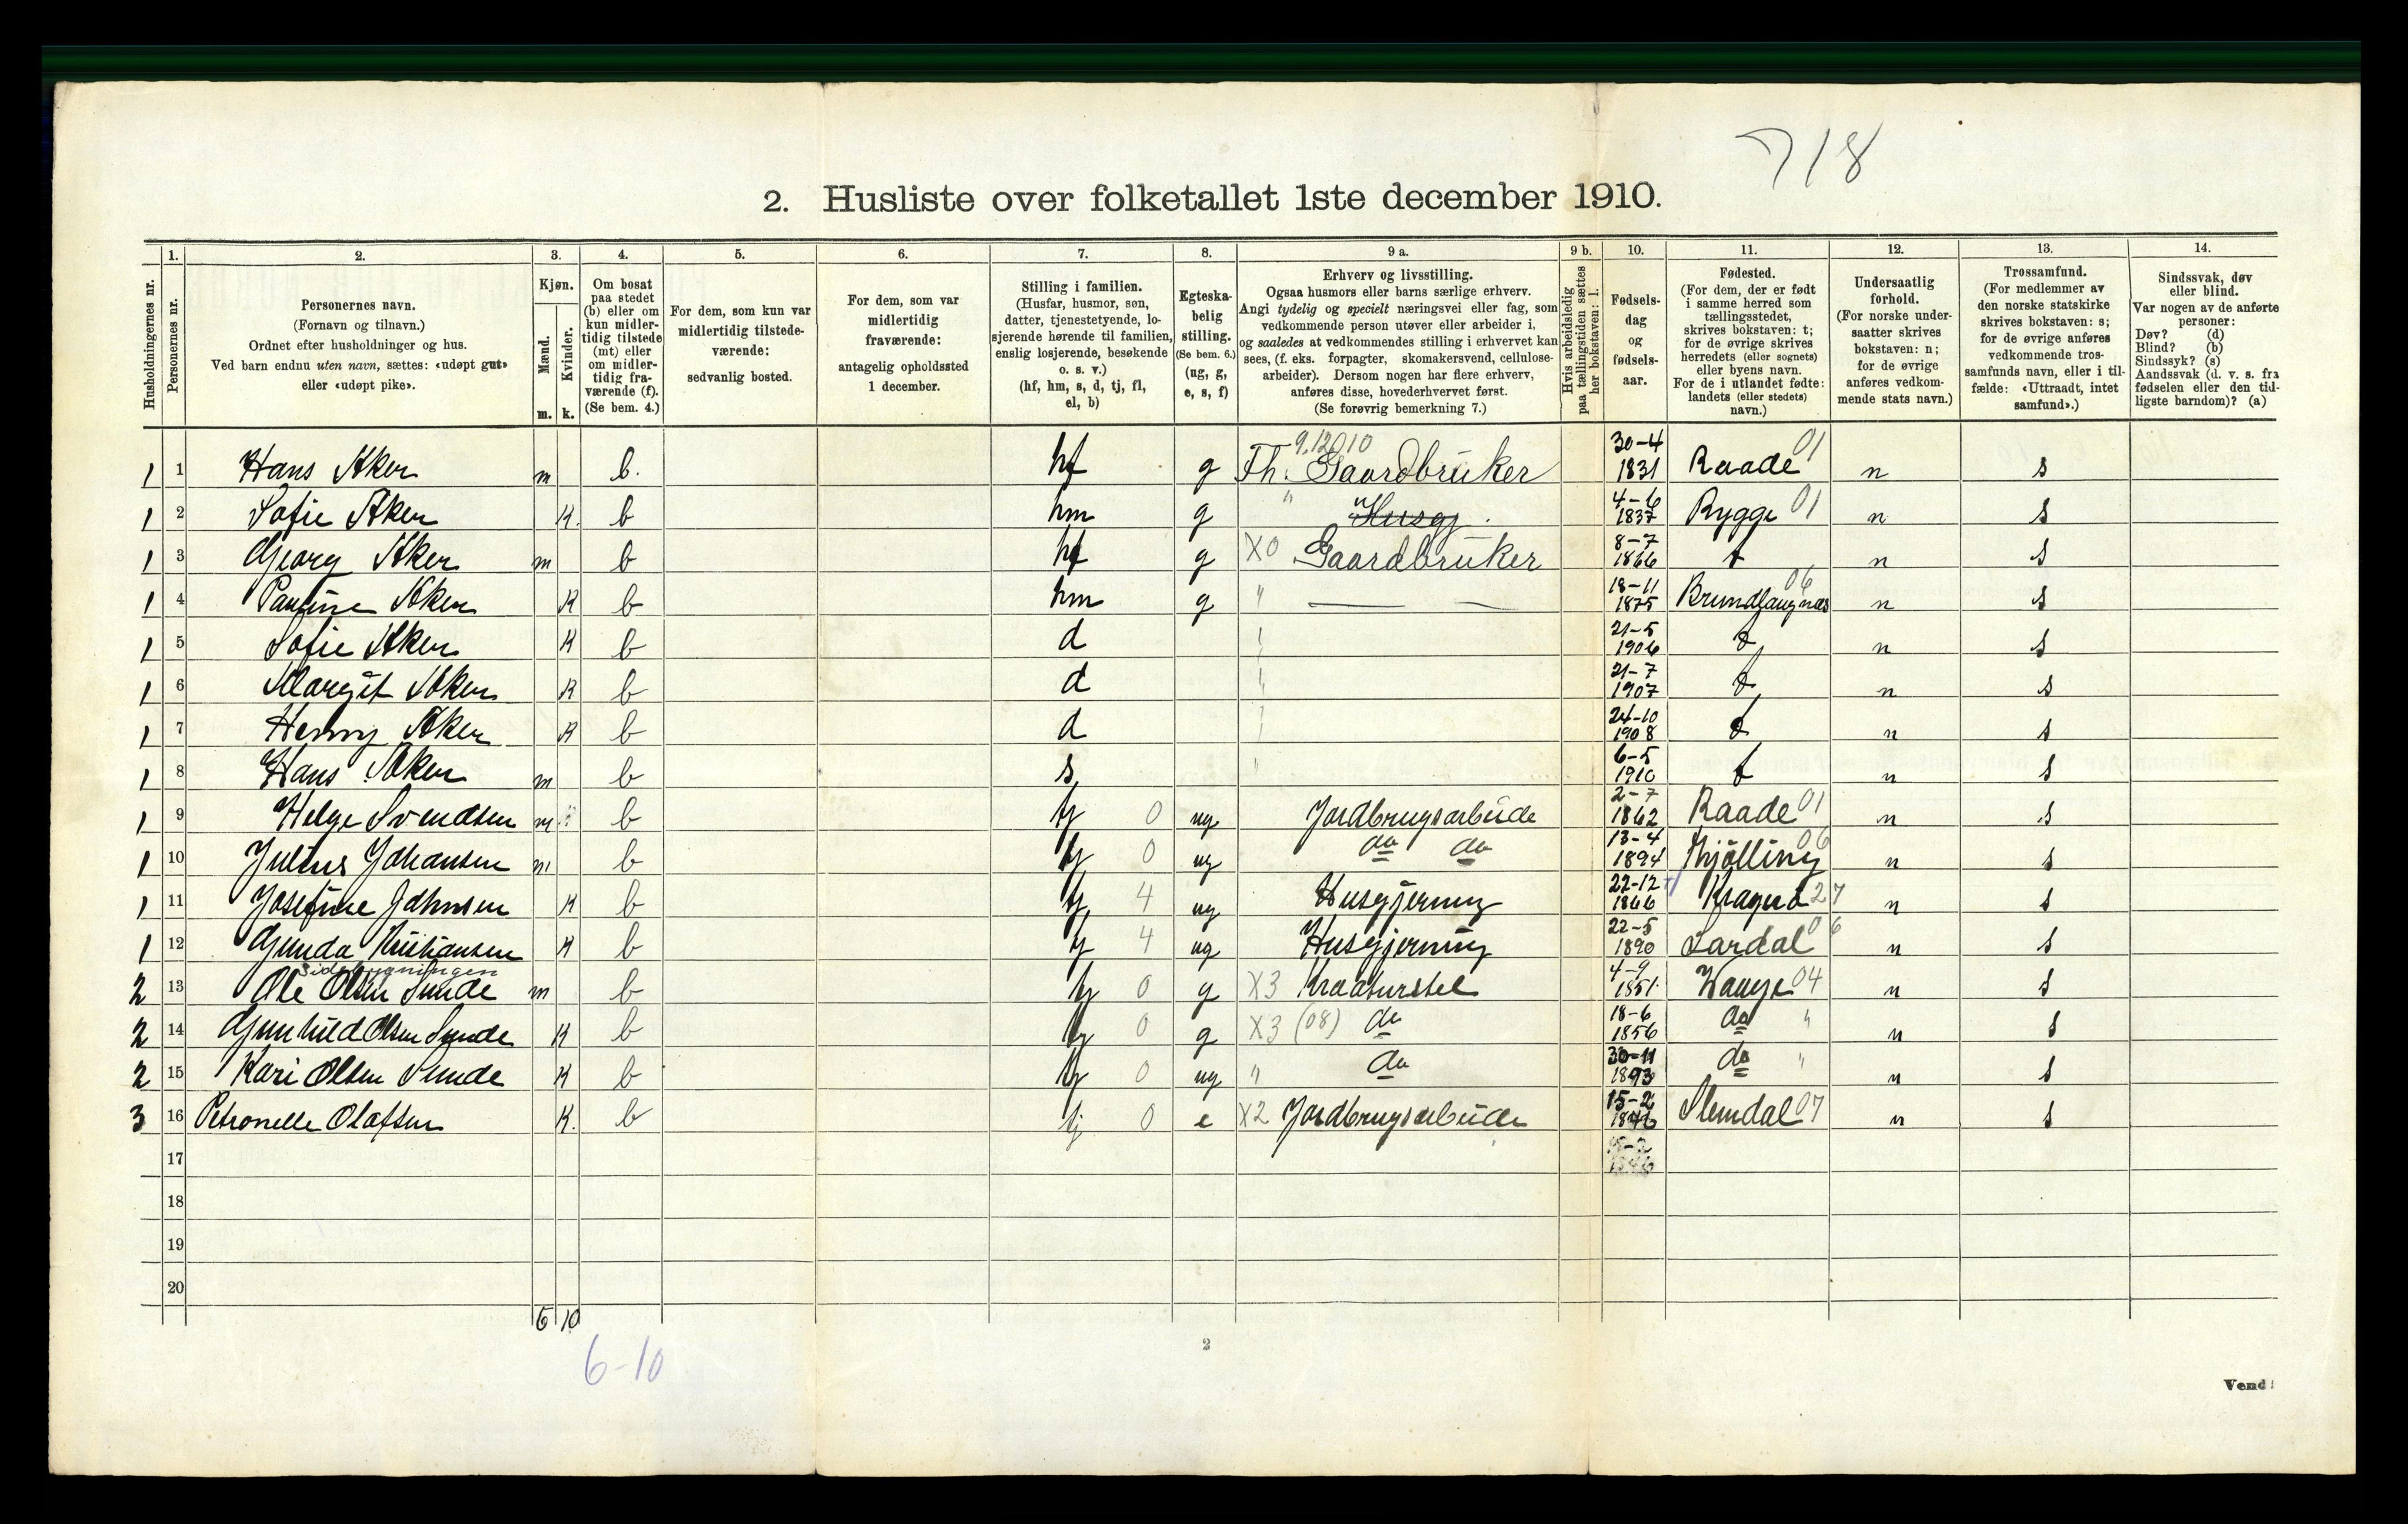 718
2. Husliste over folketallet 1ste december 1910.
Husholdningernes nr.
1. Personernes nr.
2. Personernes navn.
(Fornavn og tilnavn.)
Ordnet efter husholdninger og hus.
Ved barn endnu uten navn, sættes: «udøpt gut»
eller «udøpt pike».
3. Kjøn.
Mænd. m.
Kvinder. k.
4. Om bosat
paa stedet
(b) eller om
kun midler-
tidig tilstede
(mt) eller
om midler-
tidig fra-
værende (f).
(Se bem. 4.)
5. For dem, som kun var
midlertidig tilstede-
værende:
sedvanlig bosted.
6. For dem, som var
midlertidig
fraværende:
antagelig opholdssted
1 december.
7. Stilling i familien.
(Husfar, husmor, søn,
datter, tjenestetyende, lo-
sjerende hørende til familien,
enslig losjerende, besøkende
o. s. v.)
(hf, hm, s, d, tj, fl,
el, b)
8. Egteska-
belig
stilling.
(Se bem. 6.)
(ug, g,
e, s, f)
9 a. Erhverv og livsstilling.
Ogsaa husmors eller barns særlige erhverv.
Angi tydelig og specielt næringsvei eller fag, som
vedkommende person utøver eller arbeider i,
og saaledes at vedkommendes stilling i erhvervet kan
sees, (f. eks. forpagter, skomakersvend, cellulose-
arbeider). Dersom nogen har flere erhverv,
anføres disse, hovederhvervet først.
(Se forøvrig bemerkning 7.)
9 b. Hvis arbeidsledig
paa tællingstiden sættes
her bokstaven: l.
10. Fødsels-
dag
og
fødsels-
aar.
11. Fødested.
(For dem, der er født
i samme herred som
tællingsstedet,
skrives bokstaven: t;
for de øvrige skrives
herredets (eller sognets)
eller byens navn.
For de i utlandet fødte:
landets (eller stedets)
navn.)
12. Undersaatlig
forhold.
(For norske under-
saatter skrives
bokstaven: n;
for de øvrige
anføres vedkom-
mende stats navn.)
13. Trossamfund.
(For medlemmer av
den norske statskirke
skrives bokstaven: s;
for de øvrige anføres
vedkommende tros-
samfunds navn, eller i til-
fælde: «Uttraadt, intet
samfund».)
14. Sindssvak, døv
eller blind.
Var nogen av de anførte
personer:
Døv? (d)
Blind? (b)
Sindssyk? (s)
Aandssvak (d. v. s. fra
fødselen eller den tid-
ligste barndom)? (a)
1 1 Hans Aker m b. hf g 9.12010 Th. Gaardbruker 30-4 1831 Raade 01 n s
1 2 Sofie Aker K. b hm g " Husgj. 4-6 1837 Rygge 01 n s
1 3 Georg Aker m b hf g X0 Gaardbruker 8-7 1866 t n s
1 4 Pauline Aker K b hm g " — — 18-11 1875 Brundlangnæs 06 n s
1 5 Sofie Aker K b d " 21-5 1906 t n s
1 6 Margit Aker K b d " 21-7 1907 t n s
1 7 Henny Aker K b d " 24-10 1908 t n s
1 8 Hans Aker m b s " 6-5 1910 t n s
1 9 Helge Svendsen m b tj 0 ug Jordbrugsarbeide 2-7 1862 Raade 01 n s
1 10 Julius Johansen m b tj 0 ug do do 13-4 1894 Kjölling 06 n s
1 11 Josefine Johnsen K b tj 4 ug Husgjerning 22-12 1866 Kragerö 27 n s
1 12 Gunda Kristiansen K b tj 4 ug Husgjerning 22-5 1890 Lardal 06 n s
Sidebygningen
2 13 Ole Olsen Sunde m b tj 0 g X3 Kreaturstel 4-9 1851 Wange 04 n s
2 14 Gunhild Olsen Sunde K b tj 0 g X3 (08) do 18-6 1856 do " n s
2 15 Kari Olsen Sunde K b tj 0 ug " do 30-11 1893 do " n s
3 16 Petronelle Olafsen K. b tj 0 e X2 Jordbrugsarbeide 15-2 1846 Slemdal 07 n s
17
18
19
20
6 10
6-10
2
Vend!